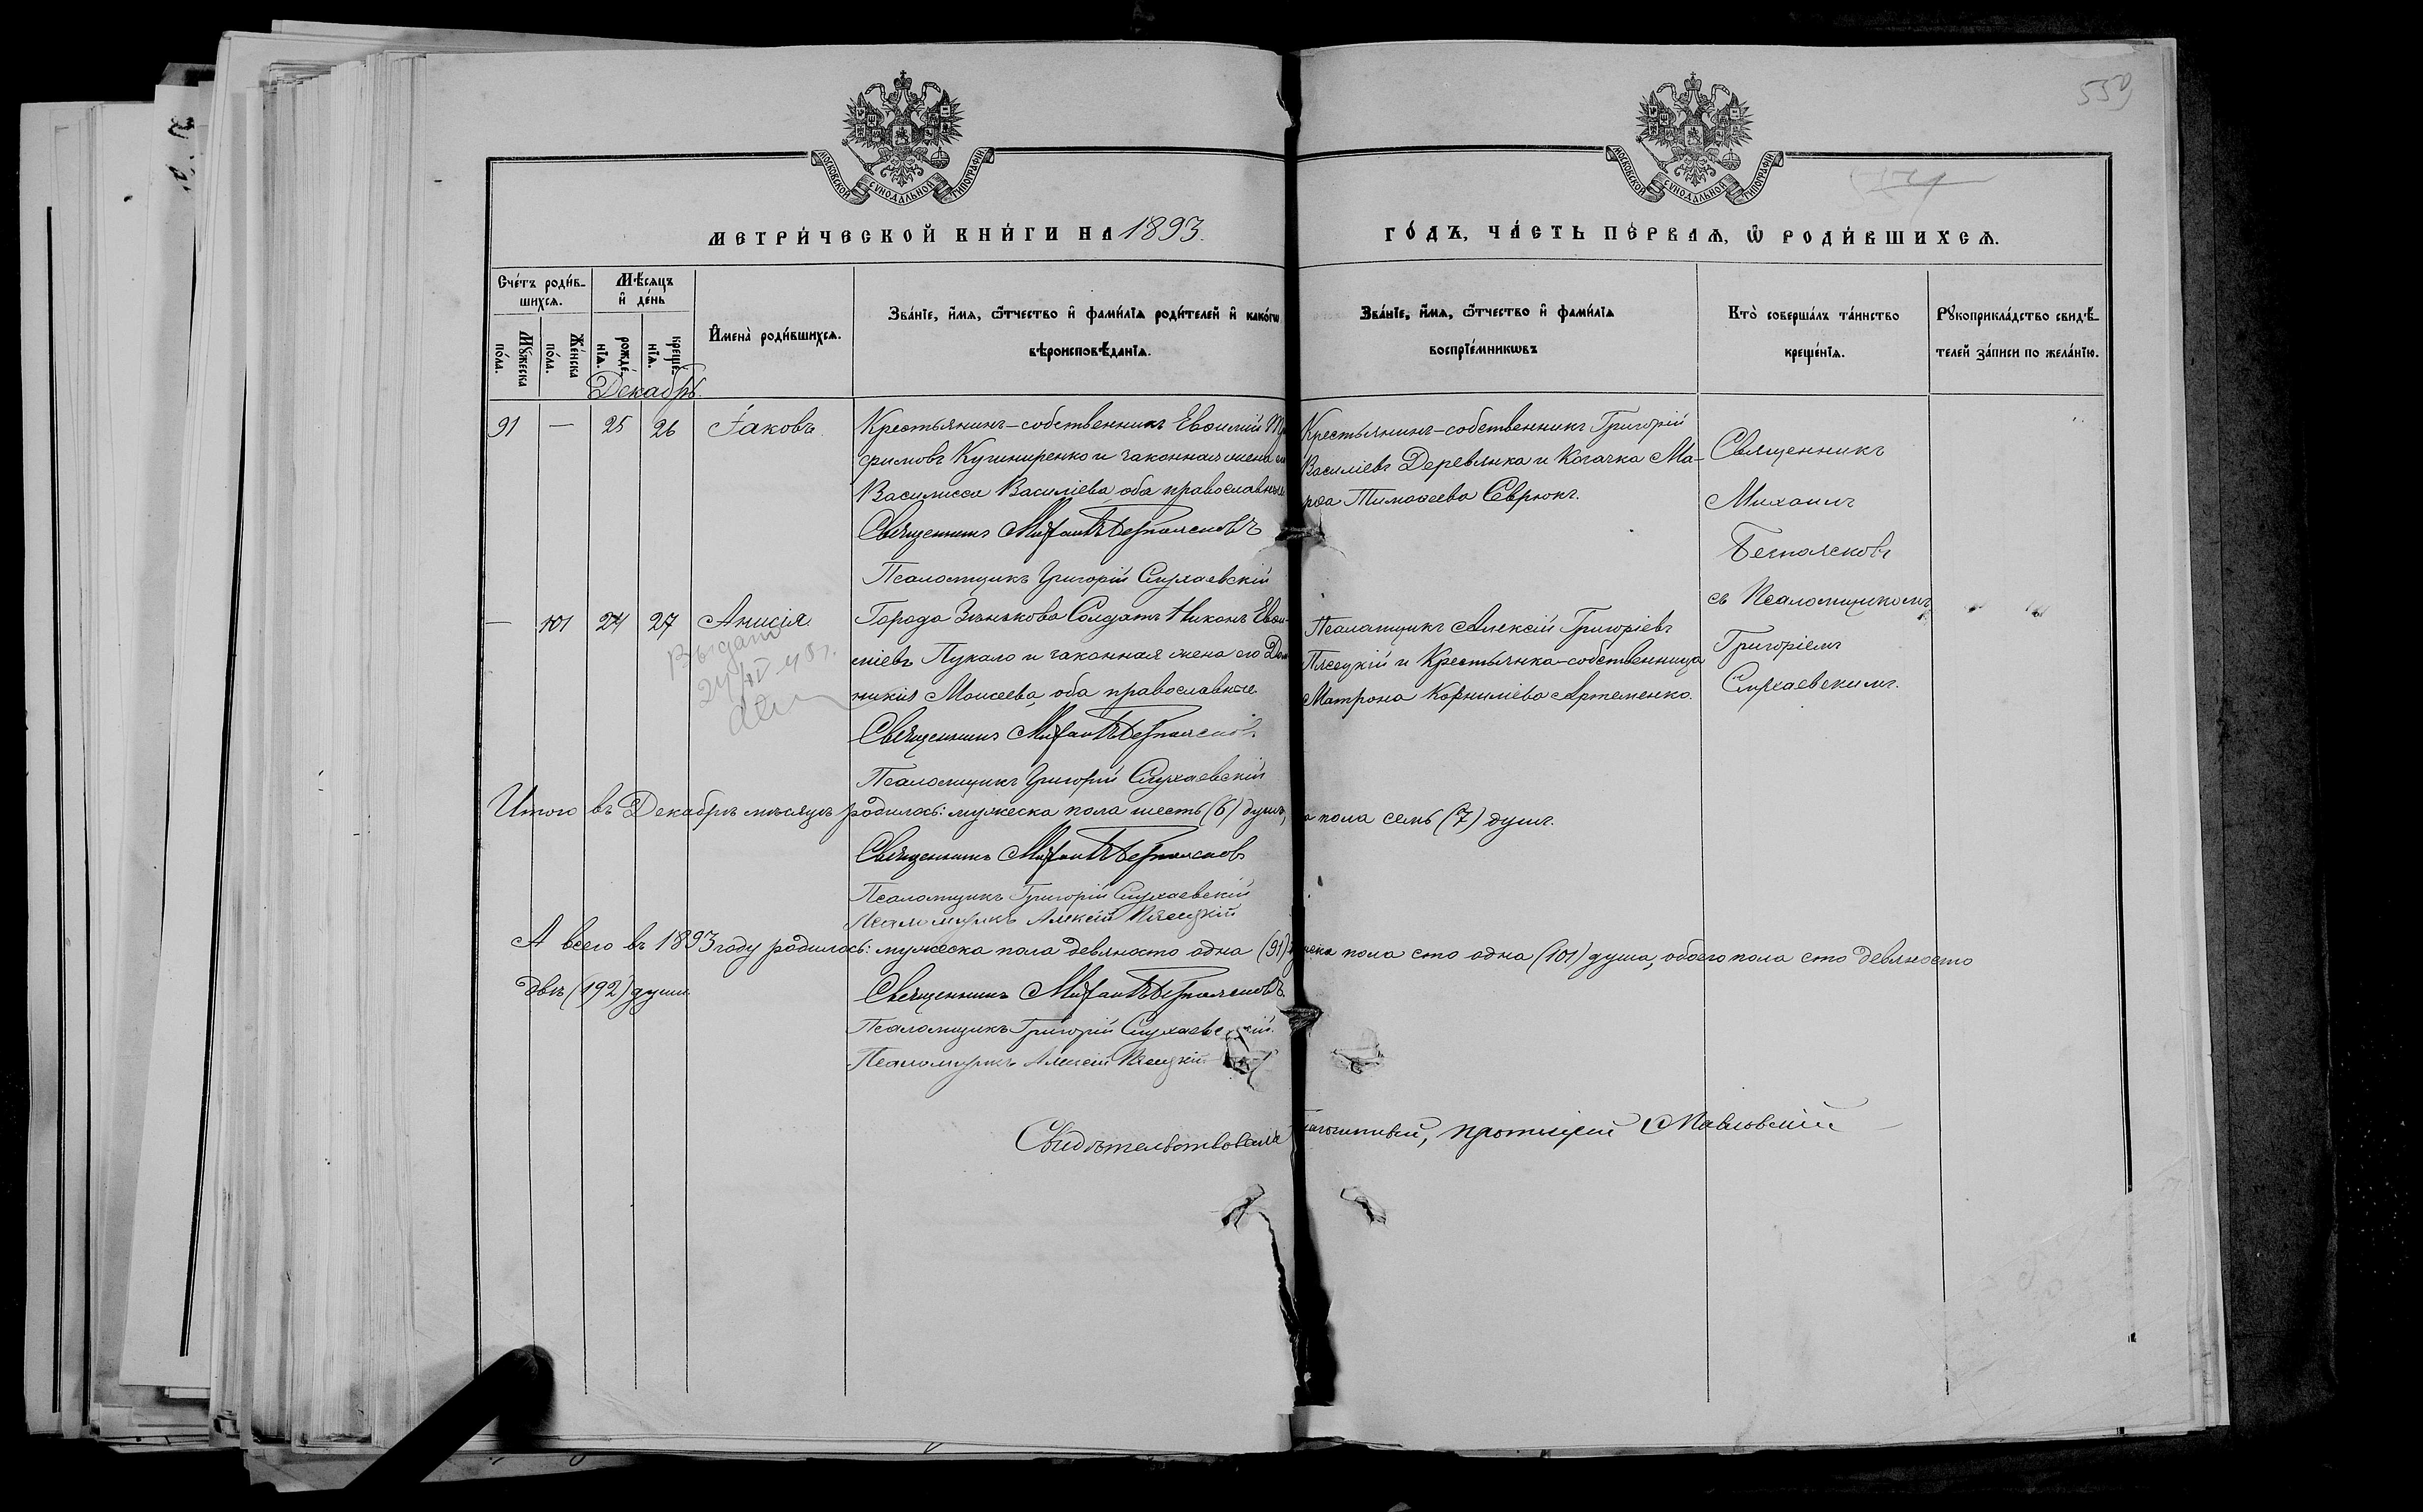 559
МОСКОВСКОЙ СѴНОДАЛЬНОЙ ТИПОГРАФІИ
МОСКОВСКОЙ СѴНОДАЛЬНОЙ ТИПОГРАФІИ
МЕТРИ́ЧЕСКОЙ КНИ́ГИ НА 1893.
ГО́ДЪ, ЧА́СТЬ ПЕ́РВАѦ, Ѽ РОДИ́ВШИХСѦ.
Сче́тъ роди́в-
шихсѧ.
Мꙋ́жеска по́ла.
Же́нска по́ла.
Мѣ́сѧцъ
и҆ де́нь
рожде́нїѧ.
креще́нїѧ.
И҆мена̀ роди́вшихсѧ.
Зва́нїе, и҆́мѧ, ѻ҆́тчество и҆ фами́лїѧ роди́телей и҆ како́гѡ
вѣроисповѣ́данїѧ.
Зва́нїе, и҆́мѧ, ѻ҆́тчество и҆ фами́лїѧ
воспрїе́мникѡвъ
Кто̀ соверша́лъ та́инство
креще́нїѧ.
Рꙋкоприкла́дство свидѣ́-
телей за́писи по жела́нїю.
Декабрь.
91 — 25 26 Іаковъ
Крестьянинъ-собственникъ Евѳимій
фимовъ Кушниренко и законная жена
Василисса Василіева, оба православные
Священникъ Михаилъ Безпалсковъ
Псаломщикъ Григорій Слухаевскій
Крестьянинъ-собственникъ Григорій
Василіевъ Деревянка и Козачка Ма-
рѳа Тимоѳеева Севрюкъ.
Священникъ
Михаилъ
съ Псаломщикомъ
Григоріемъ
Слухаевскимъ.
— 101 24 27 Анисія.
Выдано
Города Зѣнькова Солдатъ Никонъ Евѳи-
міевъ Пукало и законная жена его Дом
никія Моисеева, оба православные.
Священникъ Михаилъ
Псаломщикъ Григорій Слухаевскій
Псаломщикъ Алексій Григоріевъ
Пясецкій и Крестьянка-собственница
Матрона Корниліева Артеменко.
Итого въ Декабрѣ мѣсяцѣ родилось: мужеска пола шесть (6) душъ, а пола семь (7) душъ.
Священникъ Михаилъ
Псаломщикъ Григорій Слухаевскій
Псаломщикъ Алексій Пясецкій
А всего въ 1893 году родилось: мужеска пола девяносто одна (91) женска пола сто одна (101) душа, обоего пола сто девяносто
двѣ (192) души.
Священникъ Михаилъ
Псаломщикъ Григорій Слухаевскій.
Псаломщикъ Алексій Пясецкій
Свидѣтельствовалъ благочинный, протоіерей